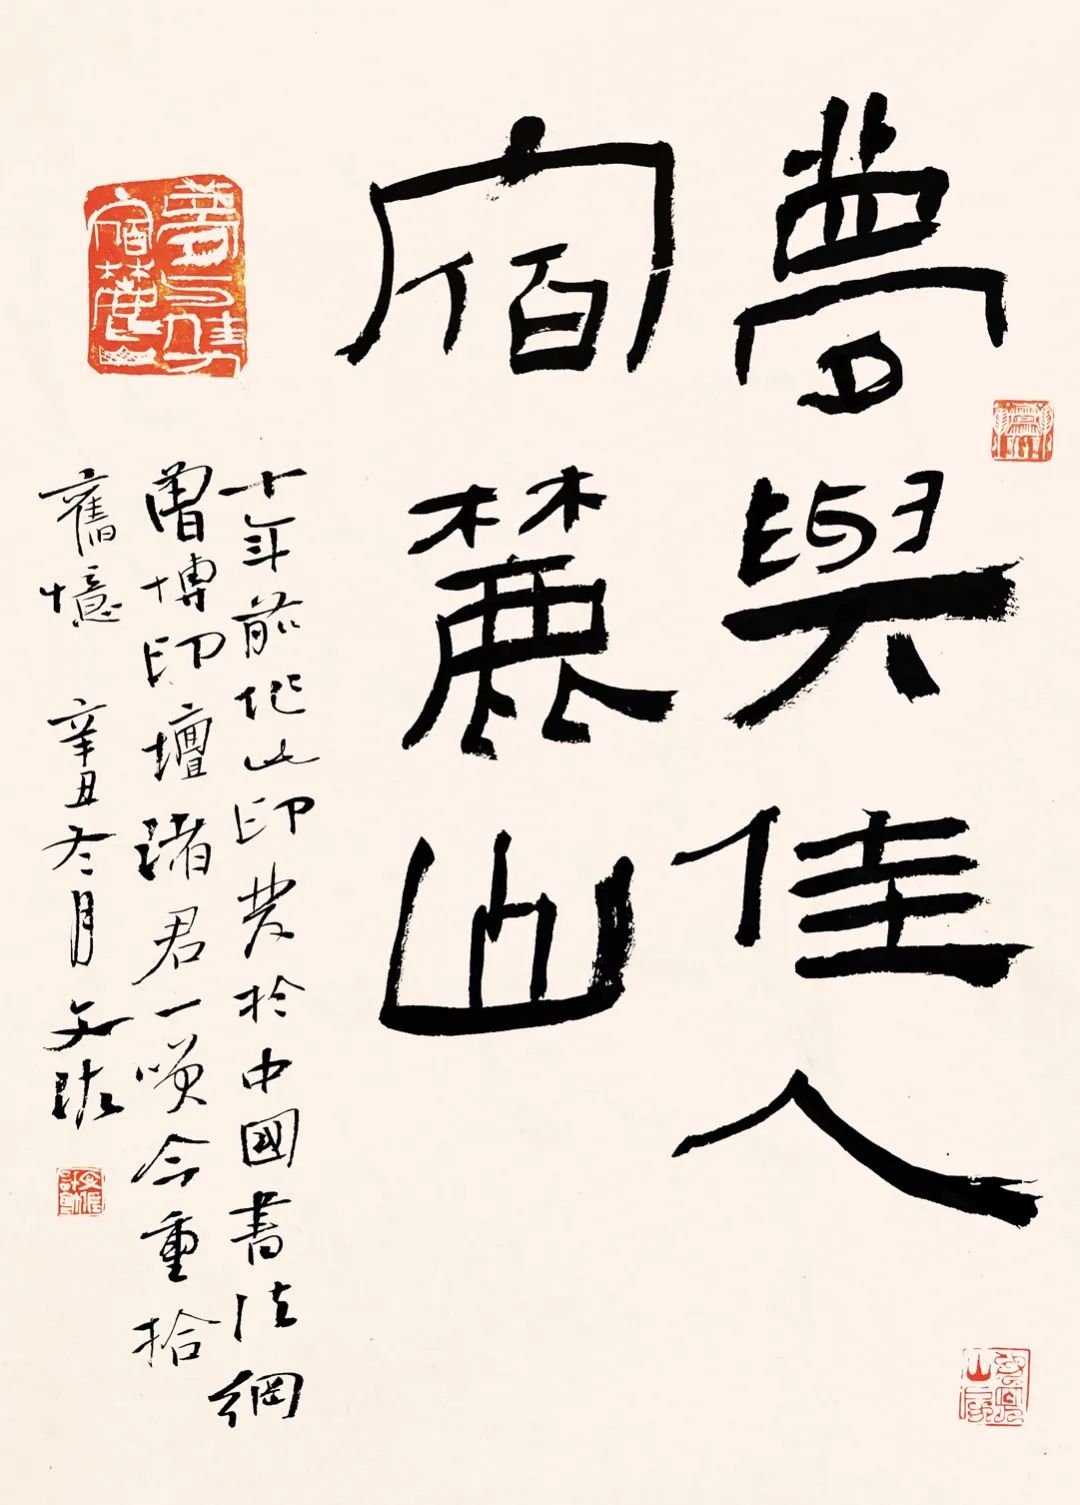 夢與佳人
宿麓山
十年前作此印發於中國書法網
曾博印壇諸君一嘆今重拾
舊憶 辛丑冬月 文
夢与佳人
宿麓山